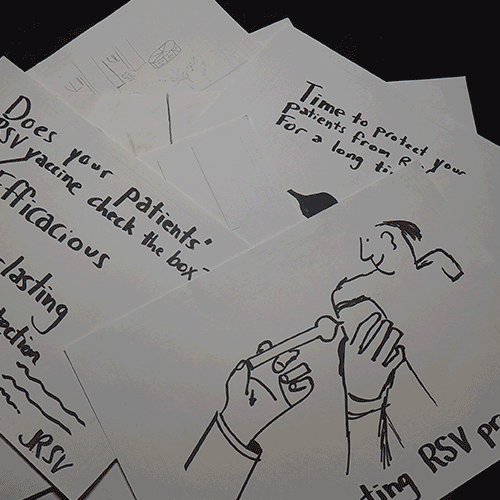 Does your patients'
RSV vaccine check the box-
Efficacious
-lasting
JRSV
Time to protect your
patients from R
For a long ti
ting RSV pr